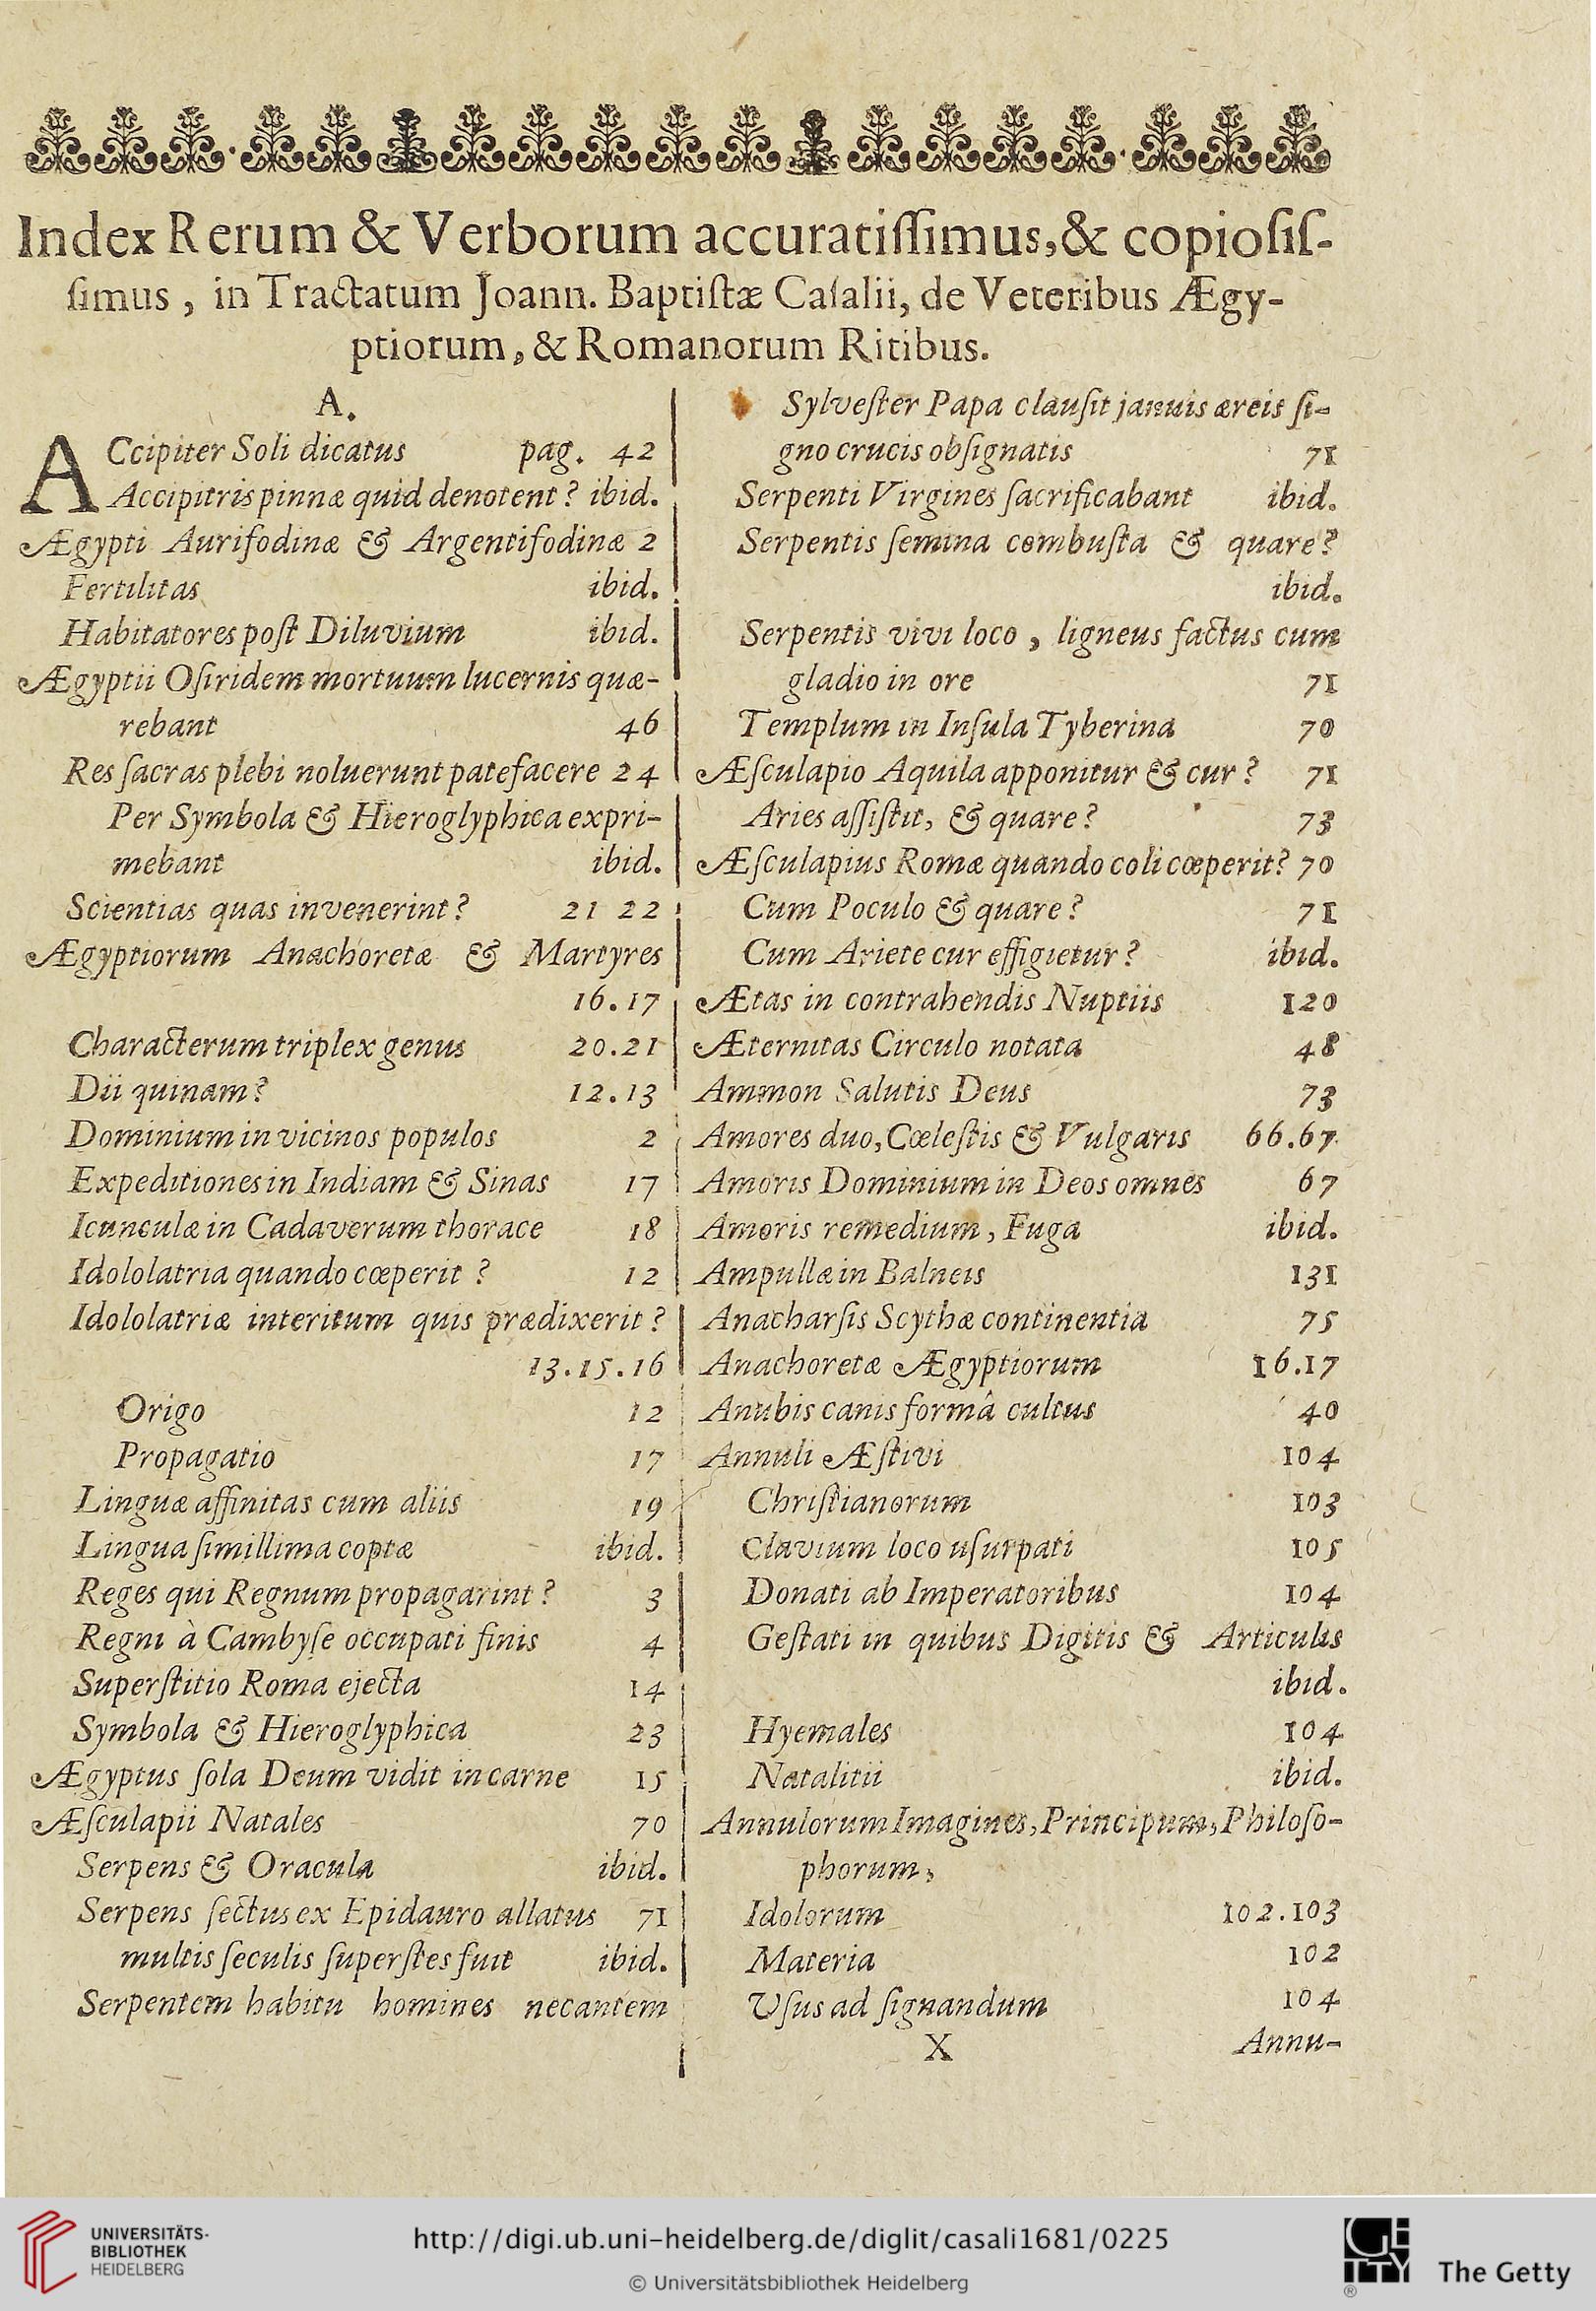 Index Rerum & Verborum accuratiſſimus,& copioſiſ-
ſimus, in Tractatum Joann. Baptiſtæ Caſalii, de Veteribus Ægy-
ptiorum, & Romanorum Ritibus.
A.
ACcipiter Soli dicatus pag. 42
Accipitris pinnæ quid denotent? ibid.
Ægypti Aurifodinæ & Argentifodinæ 2
Fertilitas ibid.
Habitatores poſt Diluvium ibid.
Ægyptii Oſiridem mortuum lucernis quæ-
rebant 46
Res ſacras plebi noluerunt patefacere 24
Per Symbola & Hieroglyphica expri-
mebant ibid.
Scientias quas invenerint? 21 22
Ægyptiorum Anachoretæ & Martyres
16.17
Characterum triplex genus 20.21
Dii quinam? 12.13
Dominium in vicinos populos 2
Expeditiones in Indiam & Sinas 17
Icunculæ in Cadaverum thorace 18
Idololatria quando cœperit? 12
Idololatriæ interitum quis prædixerit?
13.15.16
Origo 12
Propagatio 17
Linguæ affinitas cum aliis 19
Lingua ſimillima coptæ ibid.
Reges qui Regnum propagarint? 3
Regni à Cambyſe occupati finis 4
Superſtitio Roma ejecta 14
Symbola & Hieroglyphica 23
Ægyptus ſola Deum vidit in carne 15
Æſculapii Natales 70
Serpens & Oracula ibid.
Serpens ſectus ex Epidauro allatus 71
multis ſeculis ſuperſtes fuit ibid.
Serpentem habitu homines necantem
Sylveſter Papa clauſit januis æreis ſi-
gno crucis obſignatis 71
Serpenti Virgines ſacrificabant ibid.
Serpentis ſemina combuſta & quare?
ibid.
Serpentis vivi loco, ligneus factus cum
gladio in ore 71
Templum in Inſula Tyberina 70
Æſculapio Aquila apponitur & cur? 71
Aries aſſiſtit, & quare? 73
Æſculapius Romæ quando coli cœperit? 70
Cum Poculo & quare? 71
Cum Ariete cur effigietur? ibid.
Ætas in contrahendis Nuptiis 120
Æternitas Circulo notata 48
Ammon Salutis Deus 73
Amores duo, Cœleſtis & Vulgaris 66.67
Amoris Dominium in Deos omnes 67
Amoris remedium, Fuga ibid.
Ampullæ in Balneis 131
Anacharſis Scythæ continentia 75
Anachoretæ Ægyptiorum 16.17
Anubis canis formâ cultus 40
Annuli Æſtivi 104
Chriſtianorum 103
Clavium loco uſurpati 105
Donati ab Imperatoribus 104
Geſtati in quibus Digitis & Articulis
ibid.
Hyemales 104
Natalitii ibid.
Annulorum Imagines, Principum, Philoſo-
phorum,
Idolorum 102.103
Materia 102
Uſus ad ſignandum 104
X Annu-
UNIVERSITÄTS-
BIBLIOTHEK
HEIDELBERG
http://digi.ub.uni-heidelberg.de/diglit/casali1681/0225
© Universitätsbibliothek Heidelberg
GETTY
®
The Getty